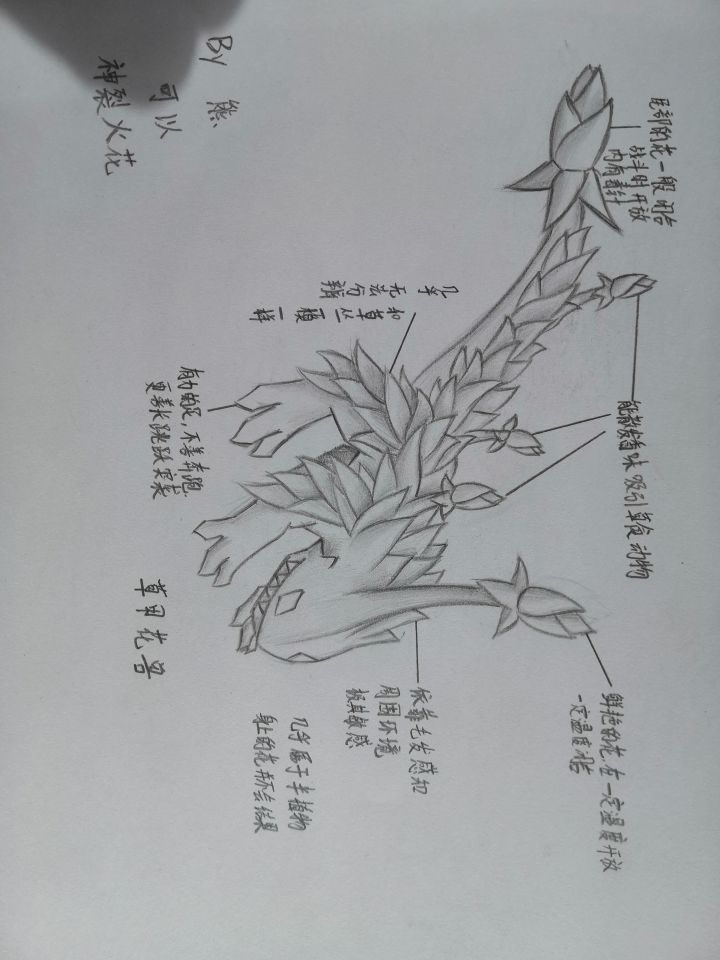 尾部的花一般闭合
战斗时开放
内有毒针
能散发香味吸引草食动物
鲜艳的花,在一定温度开放
一定温度闭合
几乎
无法
分辨
和
草丛
一模
一样
有力的足,不善奔跑
更善长跳跃突袭
依靠毛发感知
周围环境
极其敏感
几乎属于半植物
身上的花并不会结果
草甲花兽
By 熊
可以
神裂火花